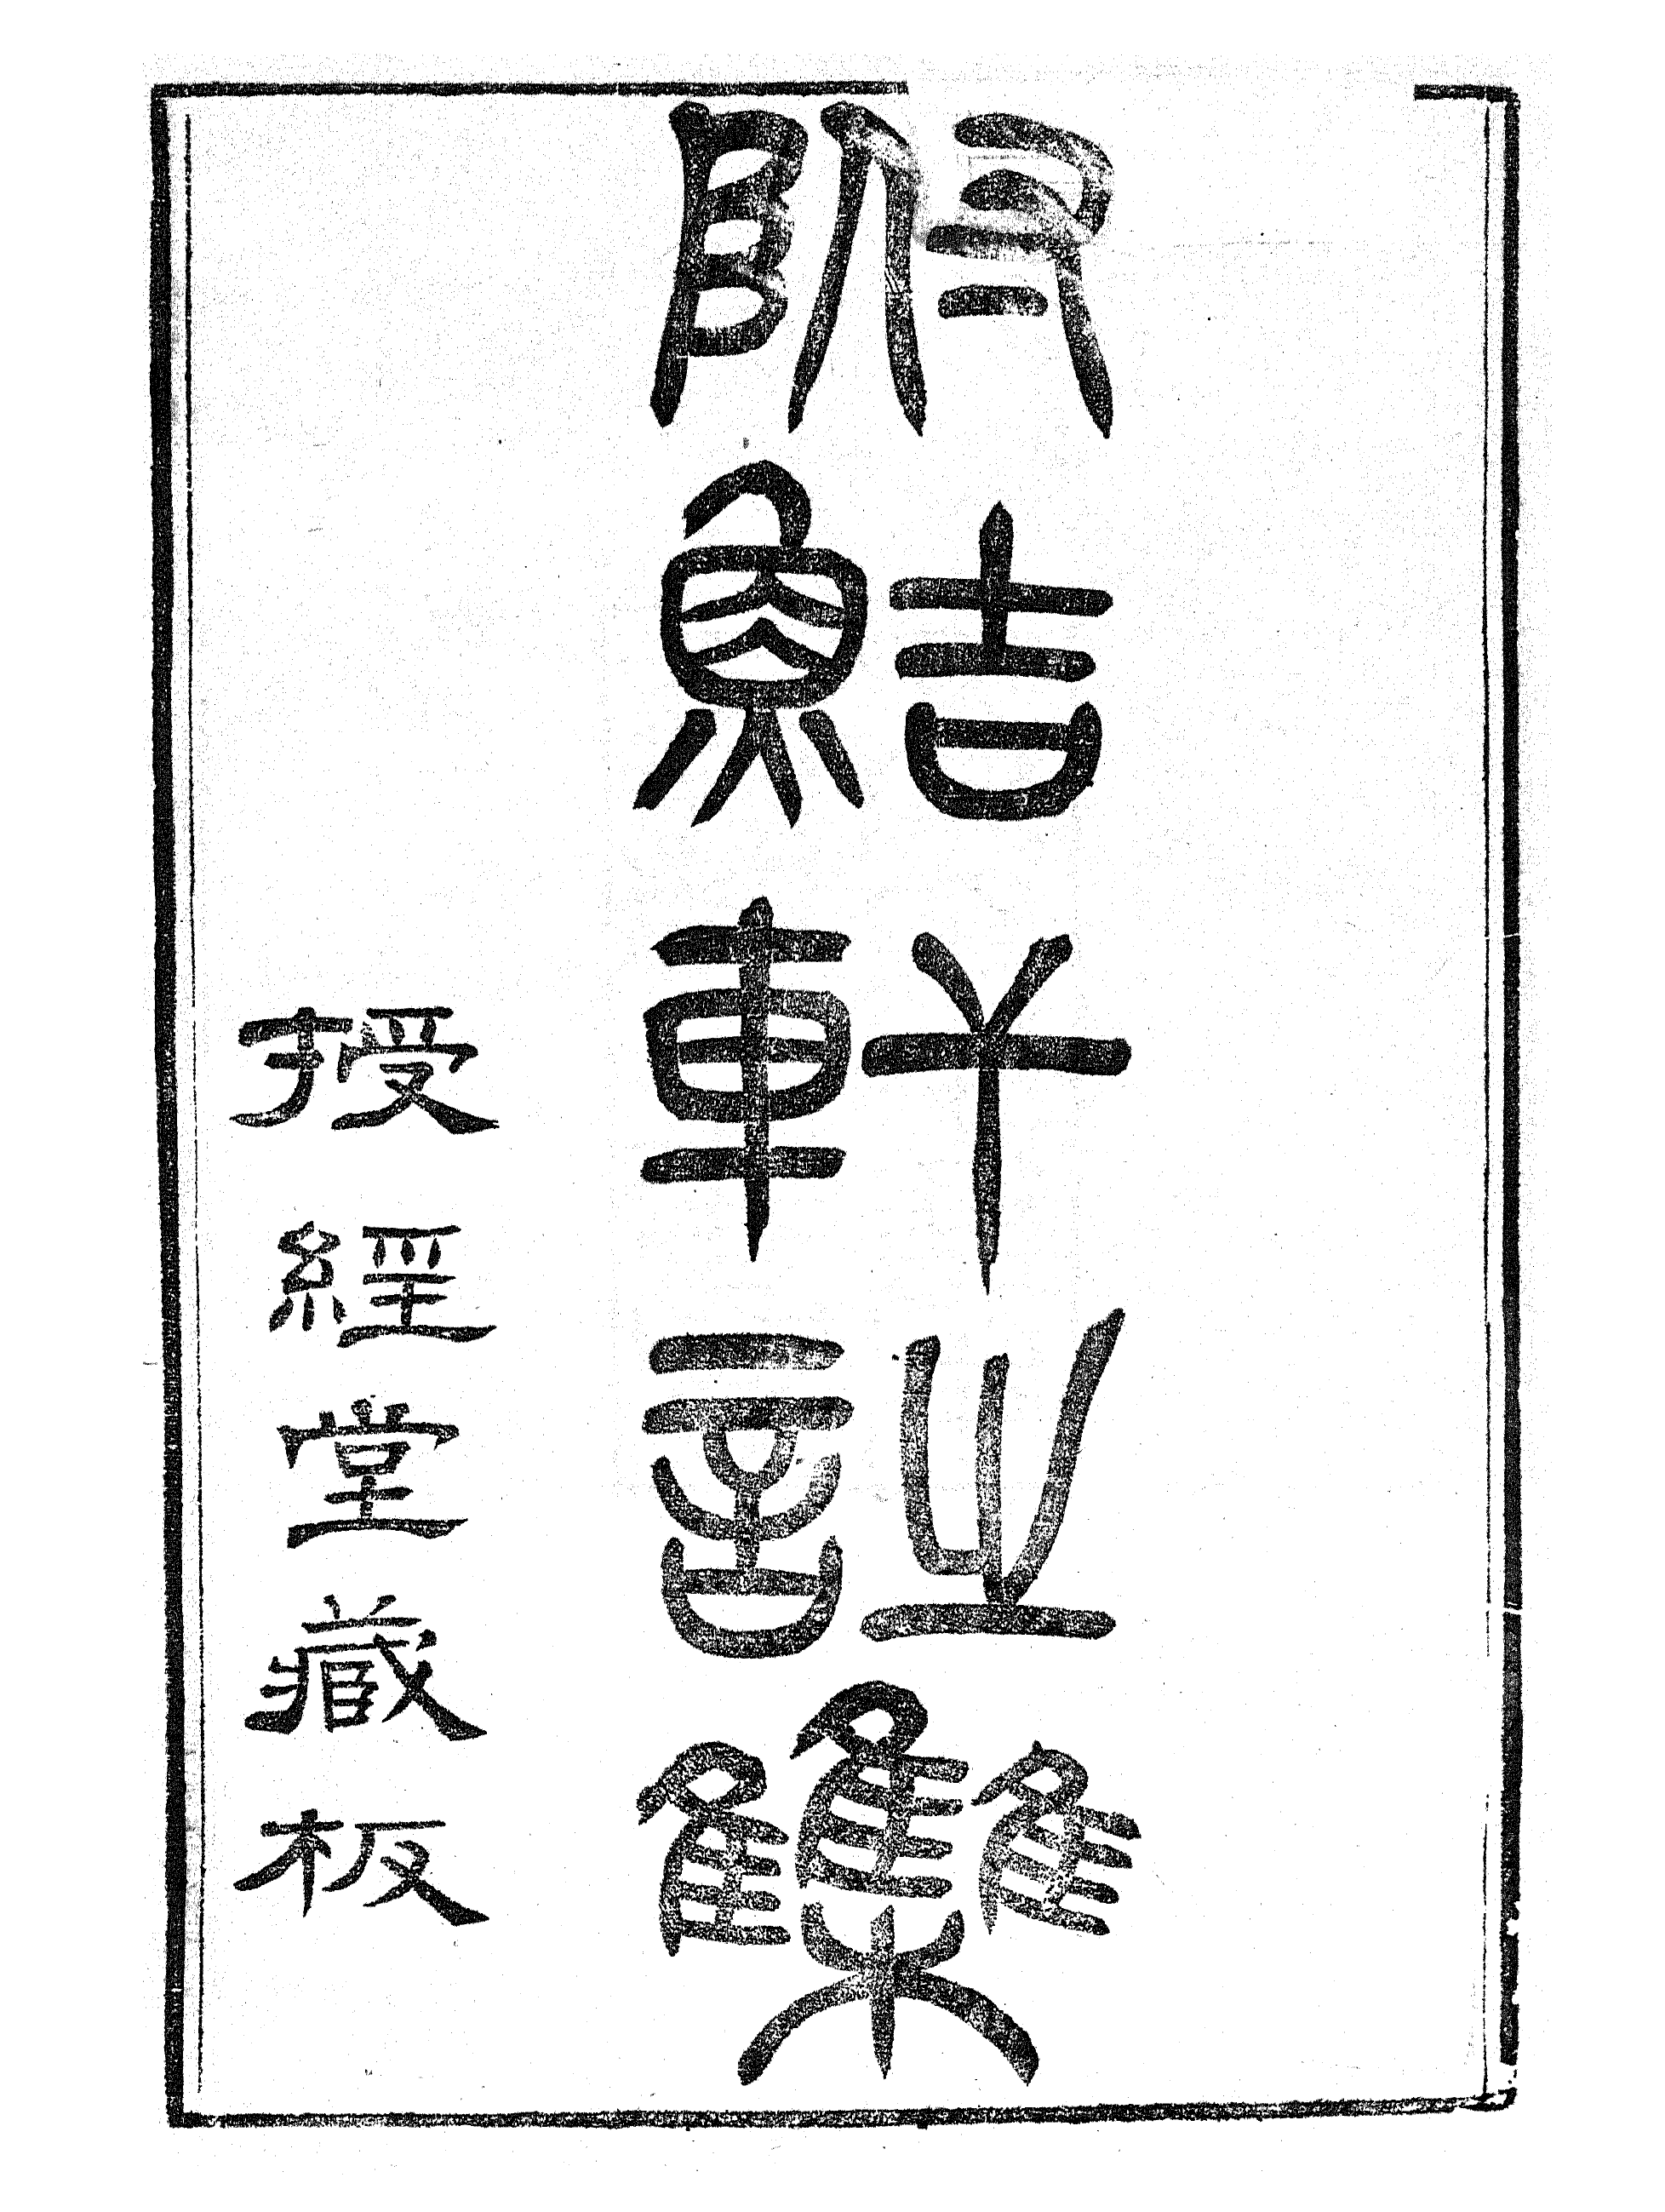 附鮚軒詩雧
授經堂藏板